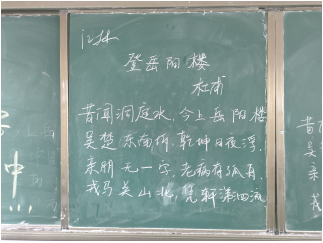 江林
登岳阳楼
杜甫
昔闻洞庭水,今上岳阳楼
吴楚东南坼,乾坤日夜浮.
亲朋无一字,老病有孤舟.
戎马关山北,凭轩涕泗流
中
昔
吴
亲
戎